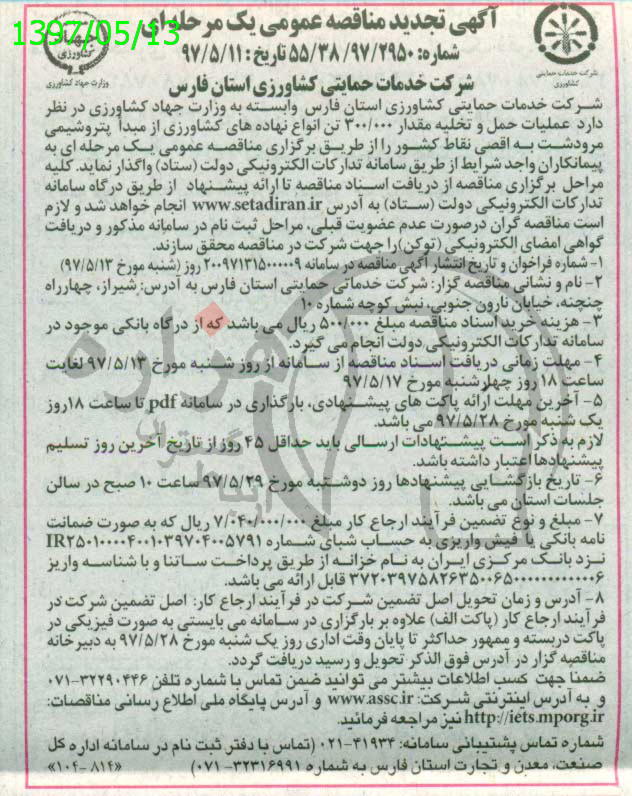 1397/05/13
آگهی تجدید مناقصه عمومی یک مرحله‌ای
شماره: ۵۵/۳۸/۹۷/۲۹۵۰ تاریخ: ۹۷/۵/۱۱
شرکت خدمات حمایتی کشاورزی
وزارت جهاد کشاورزی
شرکت خدمات حمایتی کشاورزی استان فارس
شرکت خدمات حمایتی کشاورزی استان فارس وابسته به وزارت جهاد کشاورزی در نظر
دارد عملیات حمل و تخلیه مقدار ۳۰۰/۰۰۰ تن انواع نهاده های کشاورزی از مبدأ پتروشیمی
مرودشت به اقصی نقاط کشور را از طریق برگزاری مناقصه عمومی یک مرحله ای به
پیمانکاران واجد شرایط از طریق سامانه تدارکات الکترونیکی دولت (ستاد) واگذار نماید. کلیه
مراحل برگزاری مناقصه از دریافت اسناد مناقصه تا ارائه پیشنهاد از طریق درگاه سامانه
تدارکات الکترونیکی دولت (ستاد) به آدرس www.setadiran.ir انجام خواهد شد و لازم
است مناقصه گران درصورت عدم عضویت قبلی، مراحل ثبت نام در سامانه مذکور و دریافت
گواهی امضای الکترونیکی (توکن) را جهت شرکت در مناقصه محقق سازند.
۱- شماره فراخوان و تاریخ انتشار آگهی مناقصه در سامانه ۲۰۰۹۷۱۳۱۵۰۰۰۰۰۹ روز (شنبه مورخ ۹۷/۵/۱۳)
۲- نام و نشانی مناقصه گزار: شرکت خدماتی حمایتی استان فارس به آدرس: شیراز، چهارراه
چنچنه، خیابان نارون جنوبی، نبش کوچه شماره ۱۰
۳- هزینه خرید اسناد مناقصه مبلغ ۵۰۰/۰۰۰ ریال می باشد که از درگاه بانکی موجود در
سامانه تدارکات الکترونیکی دولت انجام می گیرد.
۴- مهلت زمانی دریافت اسناد مناقصه از سامانه از روز شنبه مورخ ۹۷/۵/۱۳ لغایت
ساعت ۱۸ روز چهارشنبه مورخ ۹۷/۵/۱۷
۵- آخرین مهلت ارائه پاکت های پیشنهادی، بارگذاری در سامانه pdf تا ساعت ۱۸روز
یک شنبه مورخ ۹۷/۵/۲۸ می باشد.
لازم به ذکر است پیشنهادات ارسالی باید حداقل ۴۵ روز از تاریخ آخرین روز تسلیم
پیشنهادها اعتبار داشته باشد.
۶- تاریخ بازگشایی پیشنهادها روز دوشنبه مورخ ۹۷/۵/۲۹ ساعت ۱۰ صبح در سالن
جلسات استان می باشد.
۷- مبلغ و نوع تضمین فرآیند ارجاع کار مبلغ ۷/۰۴۰/۰۰۰/۰۰۰ ریال که به صورت ضمانت
نامه بانکی یا فیش واریزی به حساب شبای شماره IR۲۵۰۱۰۰۰۰۴۰۰۱۰۳۹۷۰۴۰۰۵۷۹۱
نزد بانک مرکزی ایران به نام خزانه از طریق پرداخت ساتنا و با شناسه واریز
۳۷۲۰۳۹۷۵۸۲۶۳۵۰۰۶۵۰۰۰۰۰۰۰۰۰۰۰۶ قابل ارائه می باشد.
۸- آدرس و زمان تحویل اصل تضمین شرکت در فرآیند ارجاع کار: اصل تضمین شرکت در
فرآیند ارجاع کار (پاکت الف) علاوه بر بارگزاری در سامانه می بایستی به صورت فیزیکی در
پاکت دربسته و ممهور حداکثر تا پایان وقت اداری روز یک شنبه مورخ ۹۷/۵/۲۸ به دبیرخانه
مناقصه گزار در آدرس فوق الذکر تحویل و رسید دریافت گردد.
ضمنا جهت کسب اطلاعات بیشتر می توانید ضمن تماس با شماره تلفن ۳۲۲۹۰۴۴۶-۰۷۱
و به آدرس اینترنتی شرکت: www.assc.ir و آدرس پایگاه ملی اطلاع رسانی مناقصات:
http://iets.mporg.ir نیز مراجعه فرمائید.
شماره تماس پشتیبانی سامانه: ۴۱۹۳۴-۰۲۱ (تماس با دفتر ثبت نام در سامانه اداره کل
صنعت، معدن و تجارت استان فارس به شماره ۳۲۳۱۶۹۹۱-۰۷۱) «۸۱۴-۱۰۴»